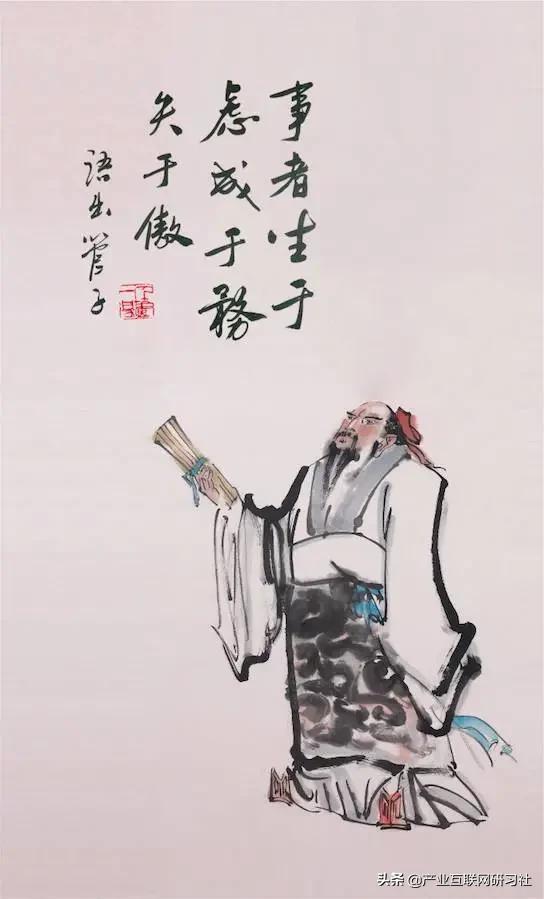 事者生于
虑成于務
失于傲
语出管子
头条 @产业互联网研习社